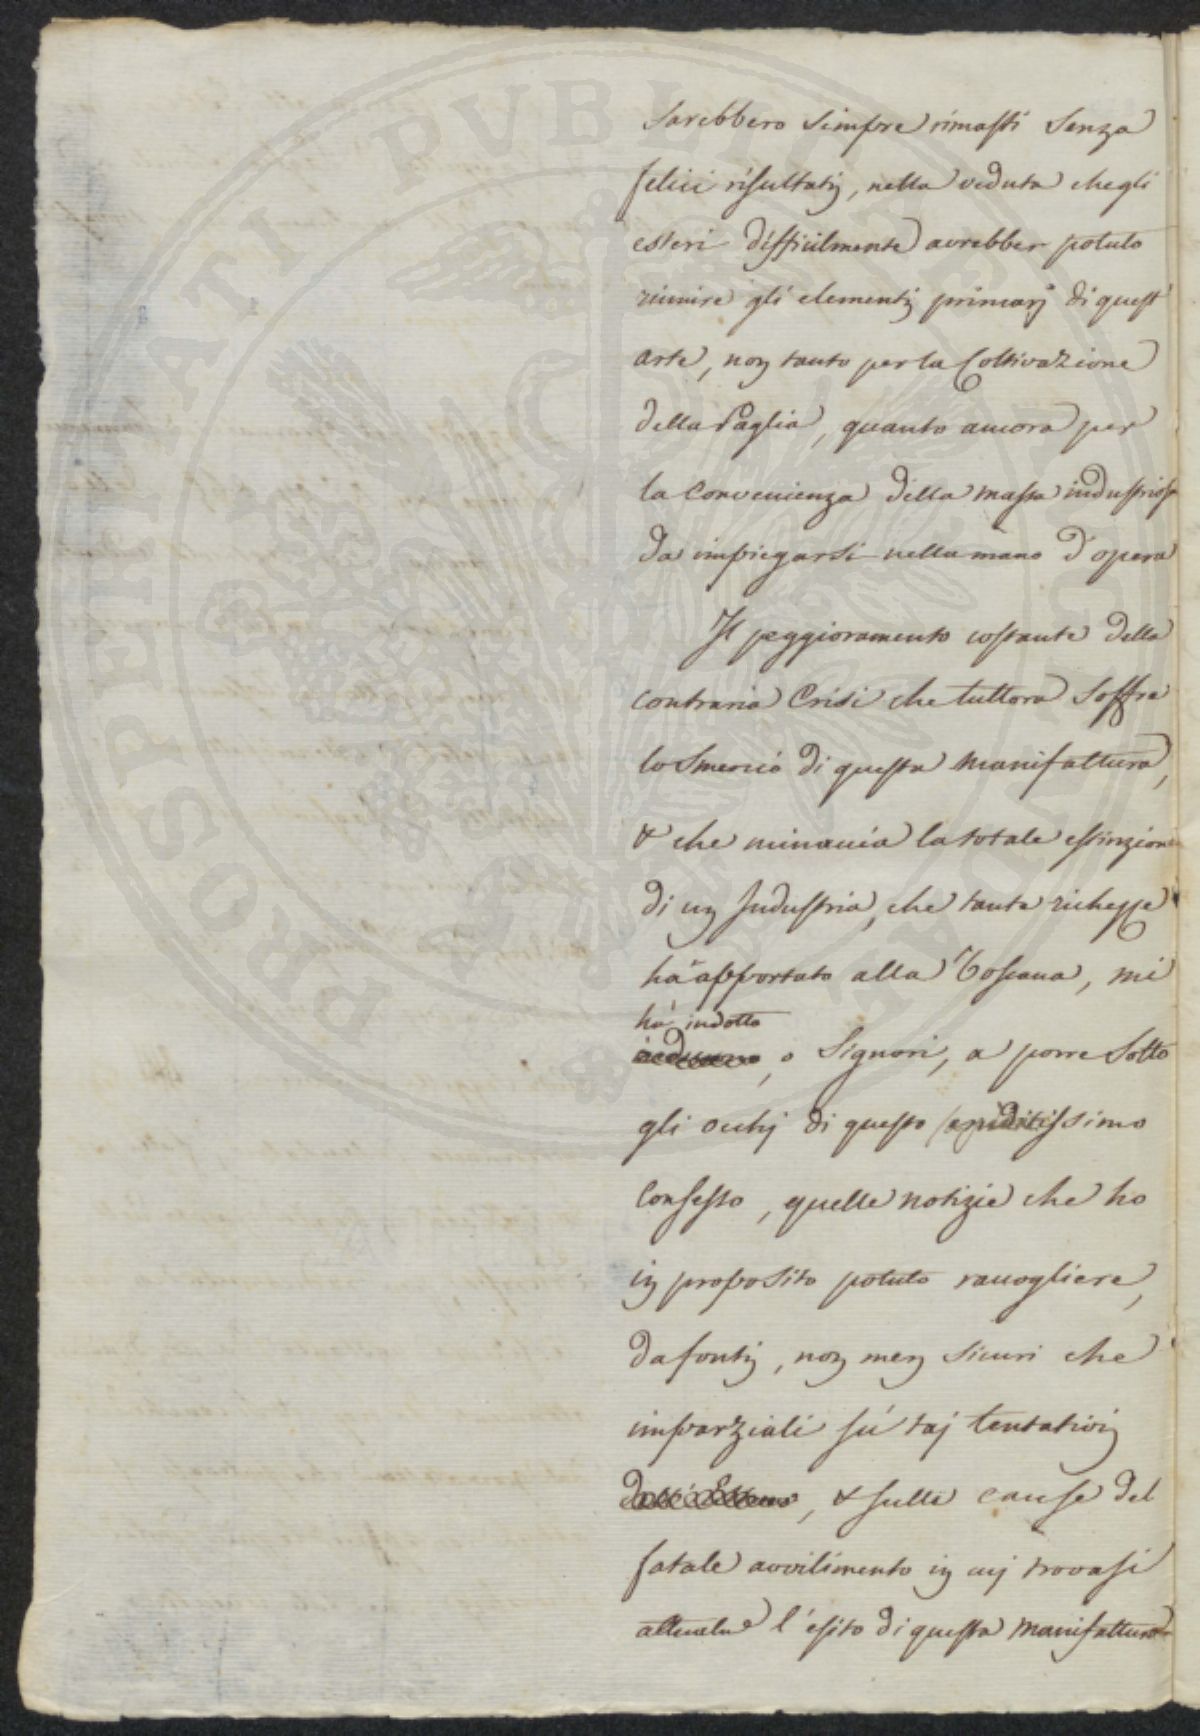 sarebbero sempre rimasti senza
felici risultati, nella veduta che gli
esteri difficilmente avrebber potuto
riunire gli elementi primarj di quest'
arte, non tanto per la Coltivazione
della Paglia, quanto ancora per
la convenienza della massa industriosa
da impiegarsi nella mano d'opera
Il peggioramento costante della
contraria Crisi che tuttora soffre
lo smercio di questa manifattura,
& che minaccia la totale estinzione
di un Industria, che tante richezze
ha apportato alla Toscana, mi
hà indotto
, o Signori, a porre sotto
gli occhj di questo
Consesso, quelle notizie che ho
in proposito potuto raccogliere,
da fonti, non men sicuri che
imparziali sù taj tentativi
, & sulle cause del
fatale avvilimento in cuj trovasi
l'esito di questa manifattura
PROSPERITATI PUBLICAE AUGENDAE